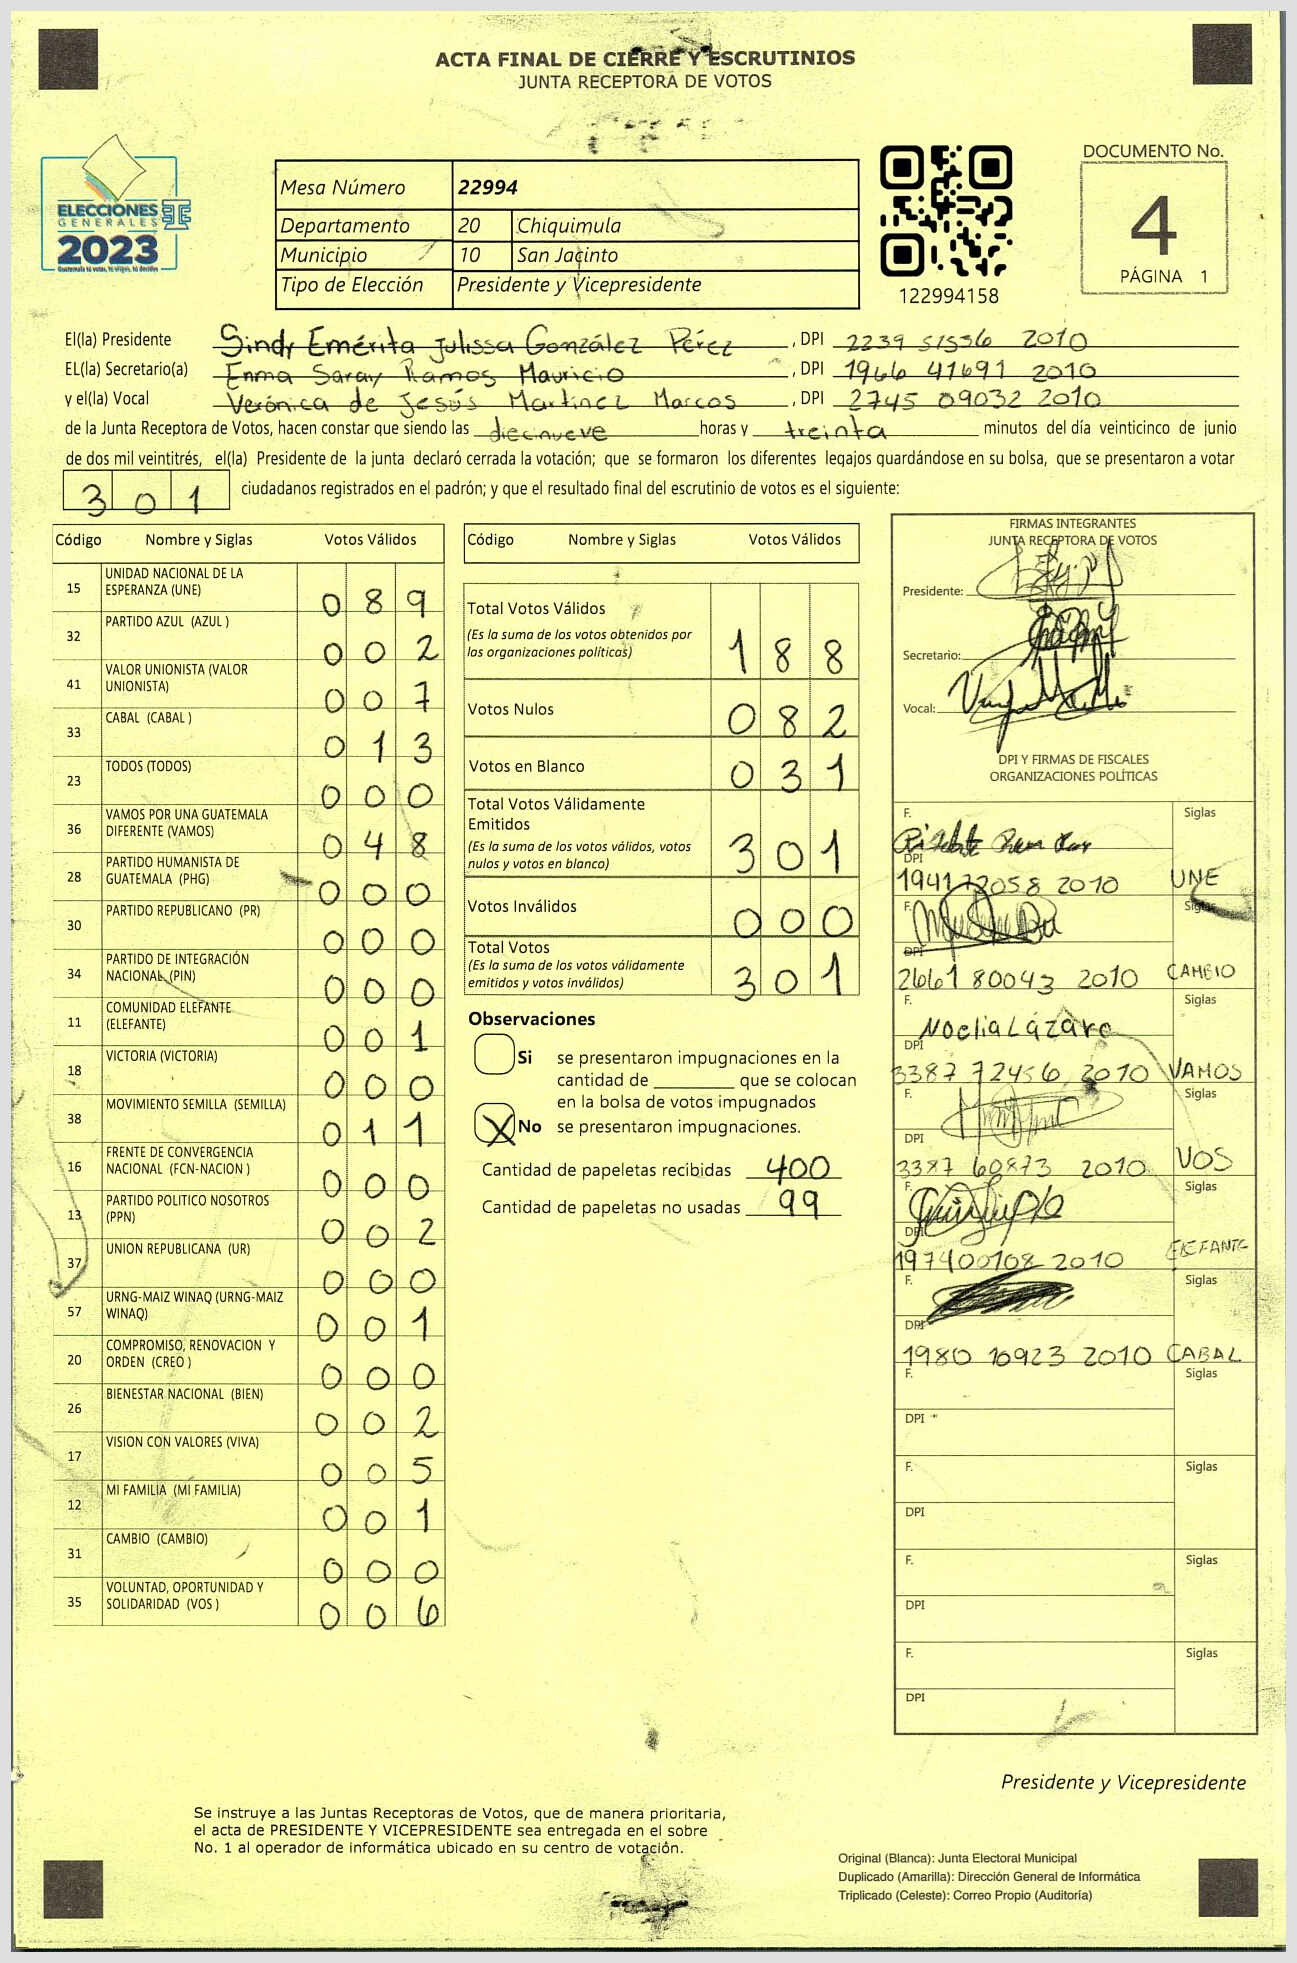 ACTA FINAL DE CIERRE Y ESCRUTINIOS
JUNTA RECEPTORA DE VOTOS
ELECCIONES
GENERALES
2023
Guatemala tú votas, tú eliges, tú decides
Mesa Número 22994
Departamento 20 Chiquimula
Municipio 10 San Jacinto
Tipo de Elección Presidente y Vicepresidente
122994158
DOCUMENTO No.
4
PÁGINA 1
El(la) Presidente Sindy Emérita Julissa González Pérez , DPI 2239 51556 2010
EL(la) Secretario(a) Enma Saray Ramos Mauricio , DPI 1966 41691 2010
y el(la) Vocal Verónica de Jesús Martínez Marcos , DPI 2745 09032 2010
de la Junta Receptora de Votos, hacen constar que siendo las diecinueve horas y treinta minutos del día veinticinco de junio
de dos mil veintitrés, el(la) Presidente de la junta declaró cerrada la votación; que se formaron los diferentes legajos guardándose en su bolsa, que se presentaron a votar
301 ciudadanos registrados en el padrón; y que el resultado final del escrutinio de votos es el siguiente:
Código Nombre y Siglas Votos Válidos
15 UNIDAD NACIONAL DE LA ESPERANZA (UNE) 089
32 PARTIDO AZUL (AZUL ) 002
41 VALOR UNIONISTA (VALOR UNIONISTA) 007
33 CABAL (CABAL ) 013
23 TODOS (TODOS) 000
36 VAMOS POR UNA GUATEMALA DIFERENTE (VAMOS) 048
28 PARTIDO HUMANISTA DE GUATEMALA (PHG) 000
30 PARTIDO REPUBLICANO (PR) 000
34 PARTIDO DE INTEGRACIÓN NACIONAL (PIN) 000
11 COMUNIDAD ELEFANTE (ELEFANTE) 001
18 VICTORIA (VICTORIA) 000
38 MOVIMIENTO SEMILLA (SEMILLA) 011
16 FRENTE DE CONVERGENCIA NACIONAL (FCN-NACION ) 000
13 PARTIDO POLITICO NOSOTROS (PPN) 002
37 UNION REPUBLICANA (UR) 000
57 URNG-MAIZ WINAQ (URNG-MAIZ WINAQ) 001
20 COMPROMISO, RENOVACION Y ORDEN (CREO ) 000
26 BIENESTAR NACIONAL (BIEN) 002
17 VISION CON VALORES (VIVA) 005
12 MI FAMILIA (MI FAMILIA) 001
31 CAMBIO (CAMBIO) 000
35 VOLUNTAD, OPORTUNIDAD Y SOLIDARIDAD (VOS ) 006
Código Nombre y Siglas Votos Válidos
Total Votos Válidos 188
(Es la suma de los votos obtenidos por
las organizaciones políticas)
Votos Nulos 082
Votos en Blanco 031
Total Votos Válidamente
Emitidos 301
(Es la suma de los votos válidos, votos
nulos y votos en blanco)
Votos Inválidos 000
Total Votos 301
(Es la suma de los votos válidamente
emitidos y votos inválidos)
Observaciones
Si se presentaron impugnaciones en la
cantidad de ________ que se colocan
en la bolsa de votos impugnados
X No se presentaron impugnaciones.
Cantidad de papeletas recibidas 400
Cantidad de papeletas no usadas 99
FIRMAS INTEGRANTES
JUNTA RECEPTORA DE VOTOS
Presidente:
Secretario:
Vocal:
DPI Y FIRMAS DE FISCALES
ORGANIZACIONES POLÍTICAS
F. Siglas
DPI
1941 72058 2010 UNE
F. Siglas
DPI
2661 80043 2010 CAMBIO
F. Noelia Lázaro Siglas
DPI
3387 72456 2010 VAMOS
F. Siglas
DPI
3387 60873 2010 VOS
F. Siglas
DPI
1974 00108 2010 ELEFANTE
F. Siglas
DPI
1980 10923 2010 CABAL
F. Siglas
DPI
F. Siglas
DPI
F. Siglas
DPI
F. Siglas
DPI
Presidente y Vicepresidente
Se instruye a las Juntas Receptoras de Votos, que de manera prioritaria,
el acta de PRESIDENTE Y VICEPRESIDENTE sea entregada en el sobre
No. 1 al operador de informática ubicado en su centro de votación.
Original (Blanca): Junta Electoral Municipal
Duplicado (Amarilla): Dirección General de Informática
Triplicado (Celeste): Correo Propio (Auditoría)